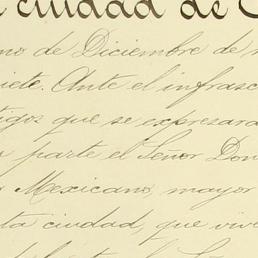 ciudad de
mo de Diciembre de
iete. Ante el infrasc
tigos que se expresara
parte el Señor Don
Mexicano, mayor
ta ciudad, que viv